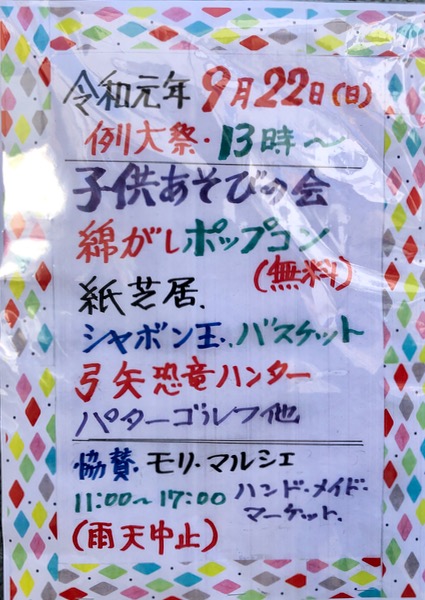 令和元年 9月22日(日)
例大祭・13時〜
子供あそびの会
綿がしポップコン
(無料)
紙芝居、
シャボン玉、バスケット
弓矢恐竜ハンター
パターゴルフ他
協賛・モリ・マルシェ
11:00〜17:00 ハンド・メイド・
マーケット、
(雨天中止)